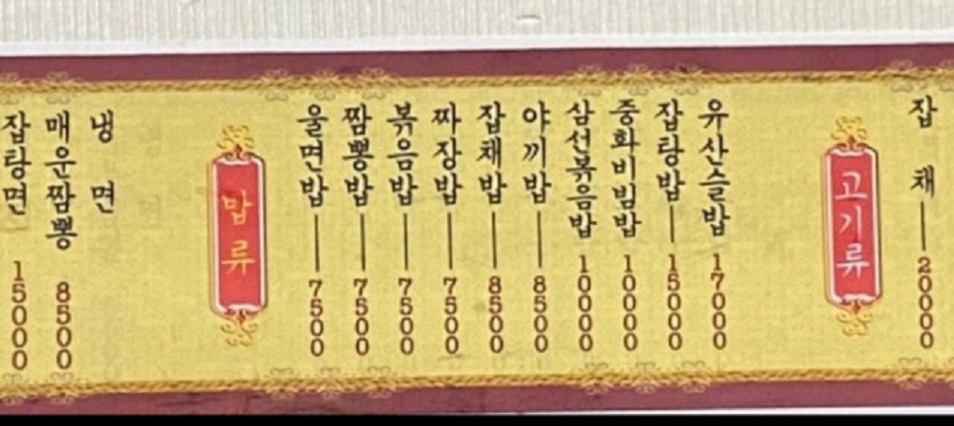 잡탕면 15000
매운짬뽕 8500
냉면
밥류
울면밥 7500
짬뽕밥 7500
볶음밥 7500
짜장밥 7500
잡채밥 8500
야끼밥 8500
삼선볶음밥 10000
중화비빔밥 10000
잡탕밥 15000
유산슬밥 17000
고기류
잡채 20000